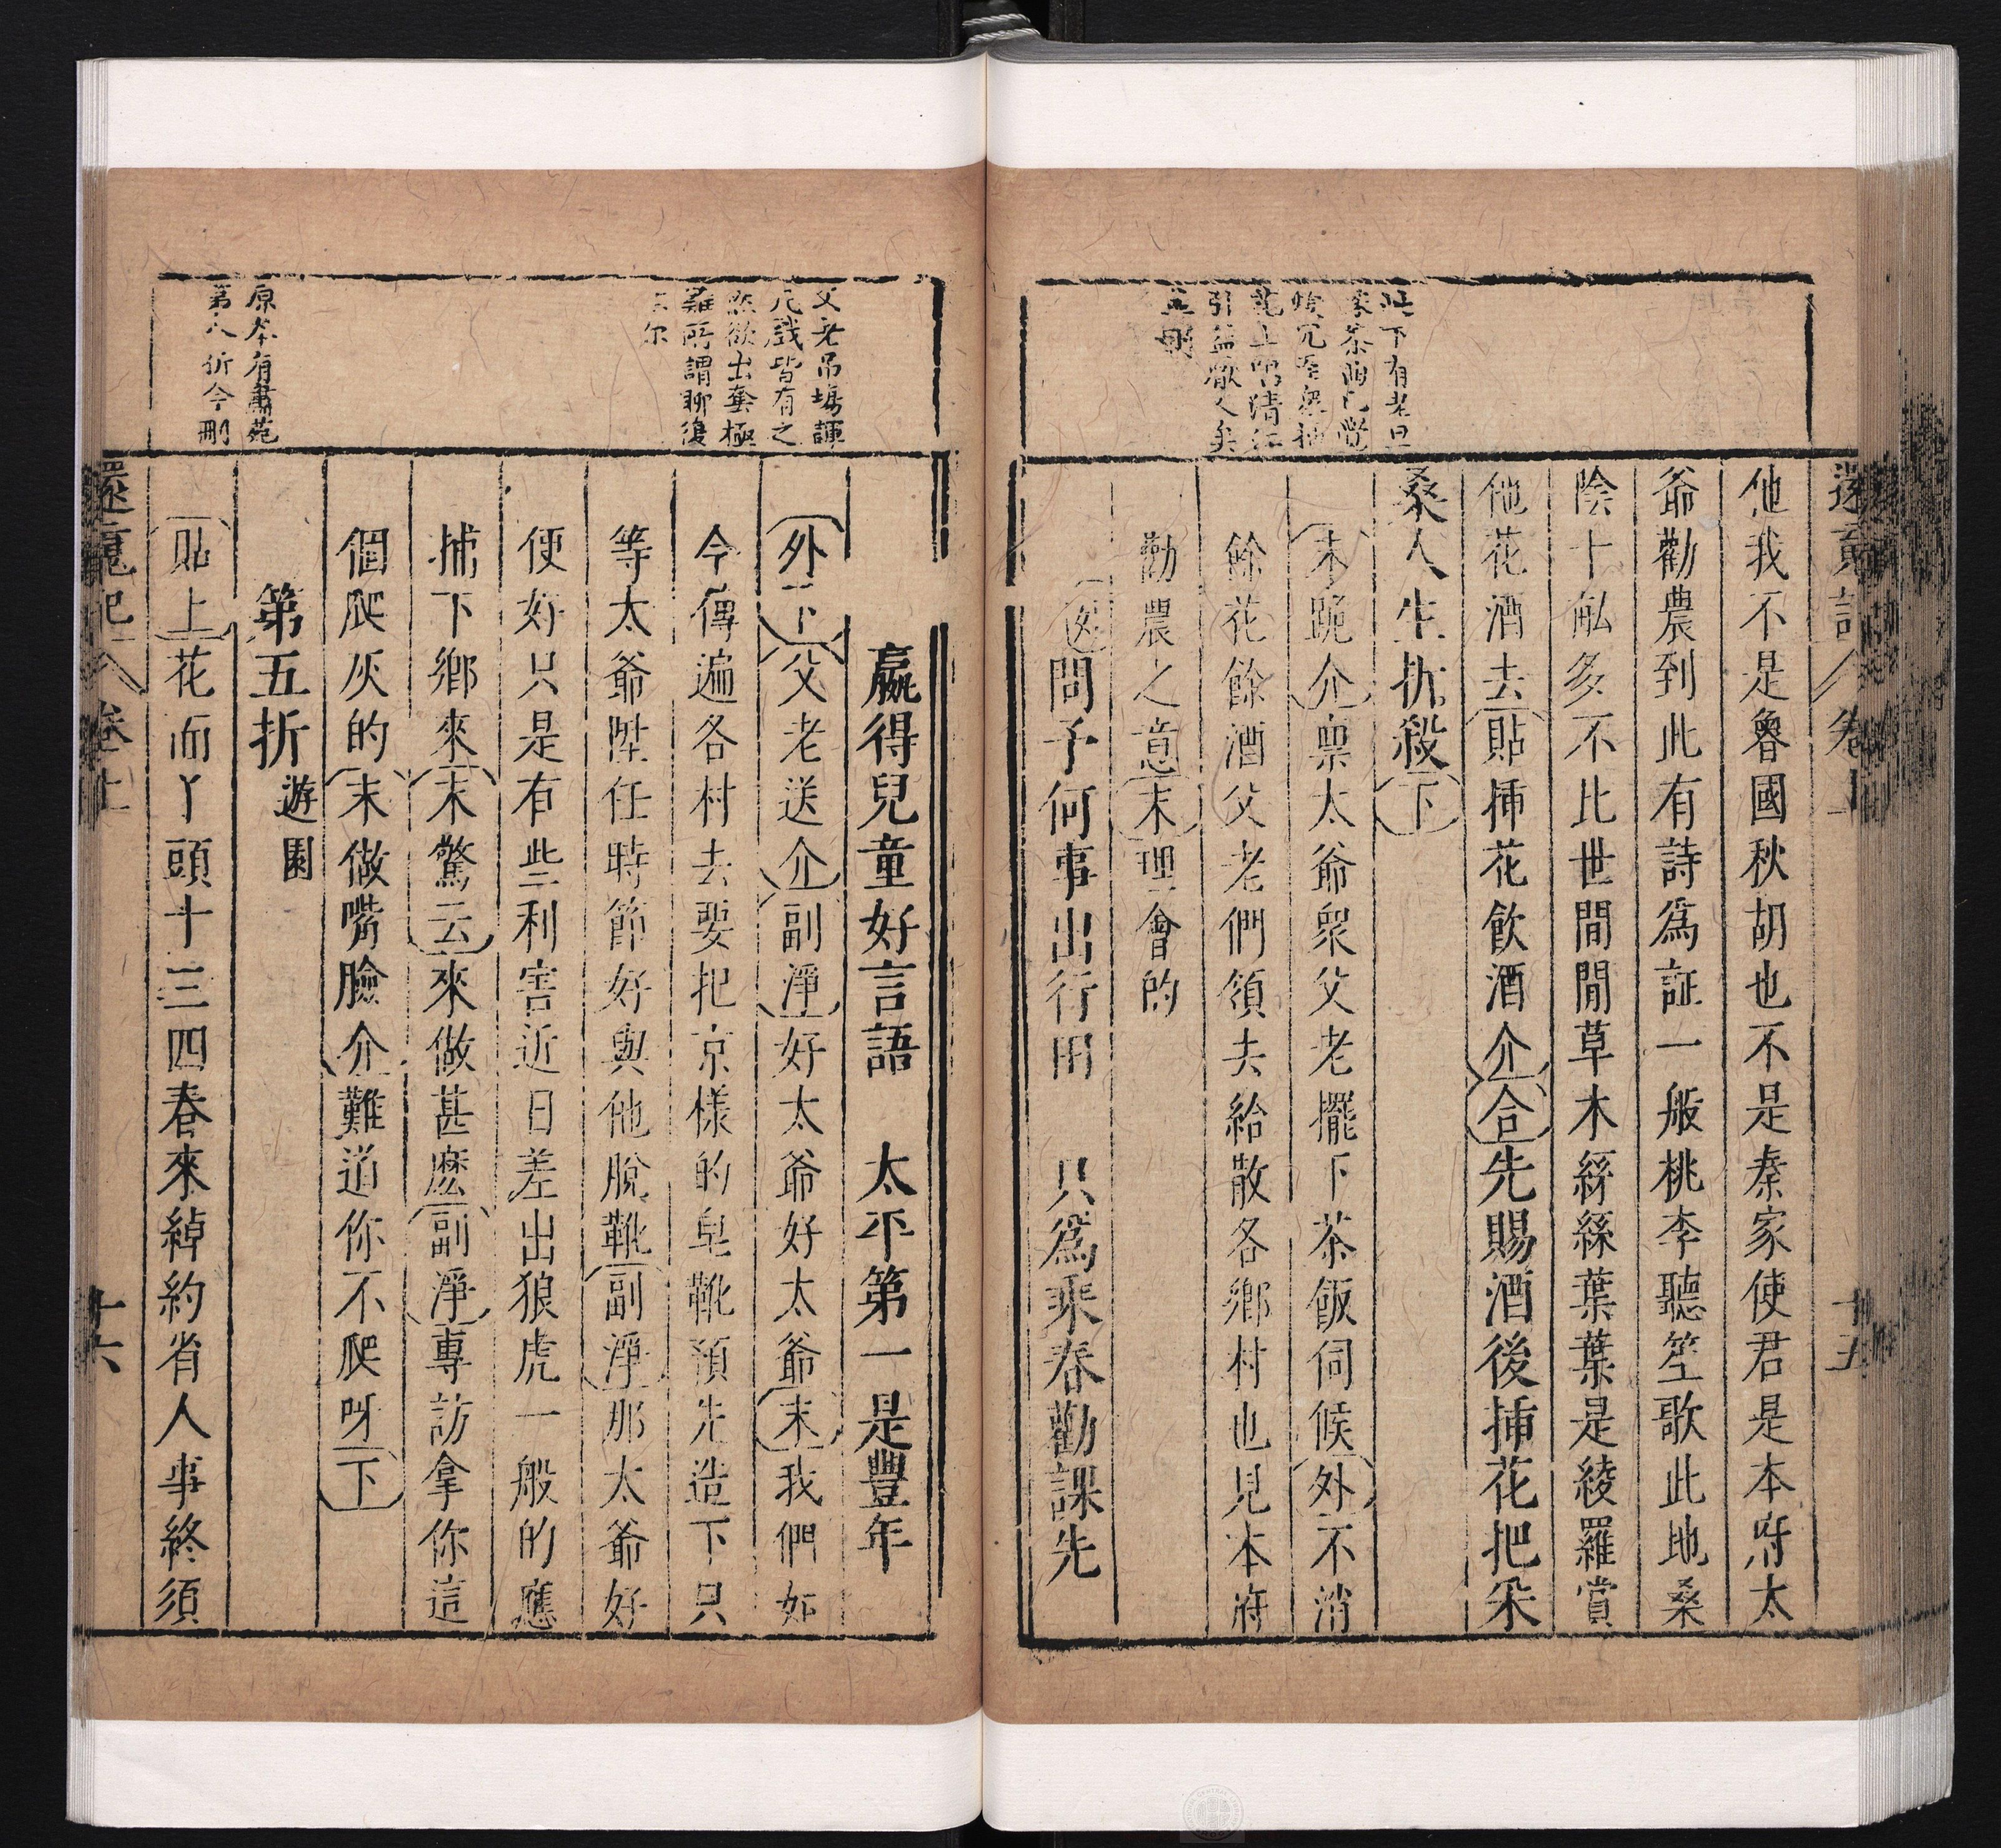 還魂記 卷上 十五
他我不是魯國秋胡也不是秦家使君是本府太
爺勸農到此有詩爲証一般桃李聽笙歌此地桑
陰十畝多不比世間閒草木絲絲葉葉是綾羅賞
他花酒去貼插花飲酒介合先賜酒後插花把朵
桑人生折殺下
末跪介禀太爺衆父老擺下茶飯伺候外不消
餘花餘酒父老們領去給散各鄉村也見本府
勸農之意末理會的
問予何事出行田 只爲乘春勸課先
此下有老旦
采茶兩
引益厭人矣
嬴得兒童好言語 太平第一是豐年
外下父老送介副淨好太爺好太爺末我們如
今傳遍各村去要把京樣的皂靴預先造下只
等太爺陞任時節好與他脫靴副淨那太爺好
便好只是有些利害近日差出狼虎一般的應
捕下鄉來末驚云來做甚麽副淨專訪拿你這
個爬灰的末做嘴臉介難道你不爬呀下
第五折 遊園
貼上花面丫頭十三四春來綽約省人事終須
父老吊場諢
元戲皆有之
然欲出奪極
難所謂聊復
尔
原本有肅苑
第八折今刪
還魂記 卷上 十六